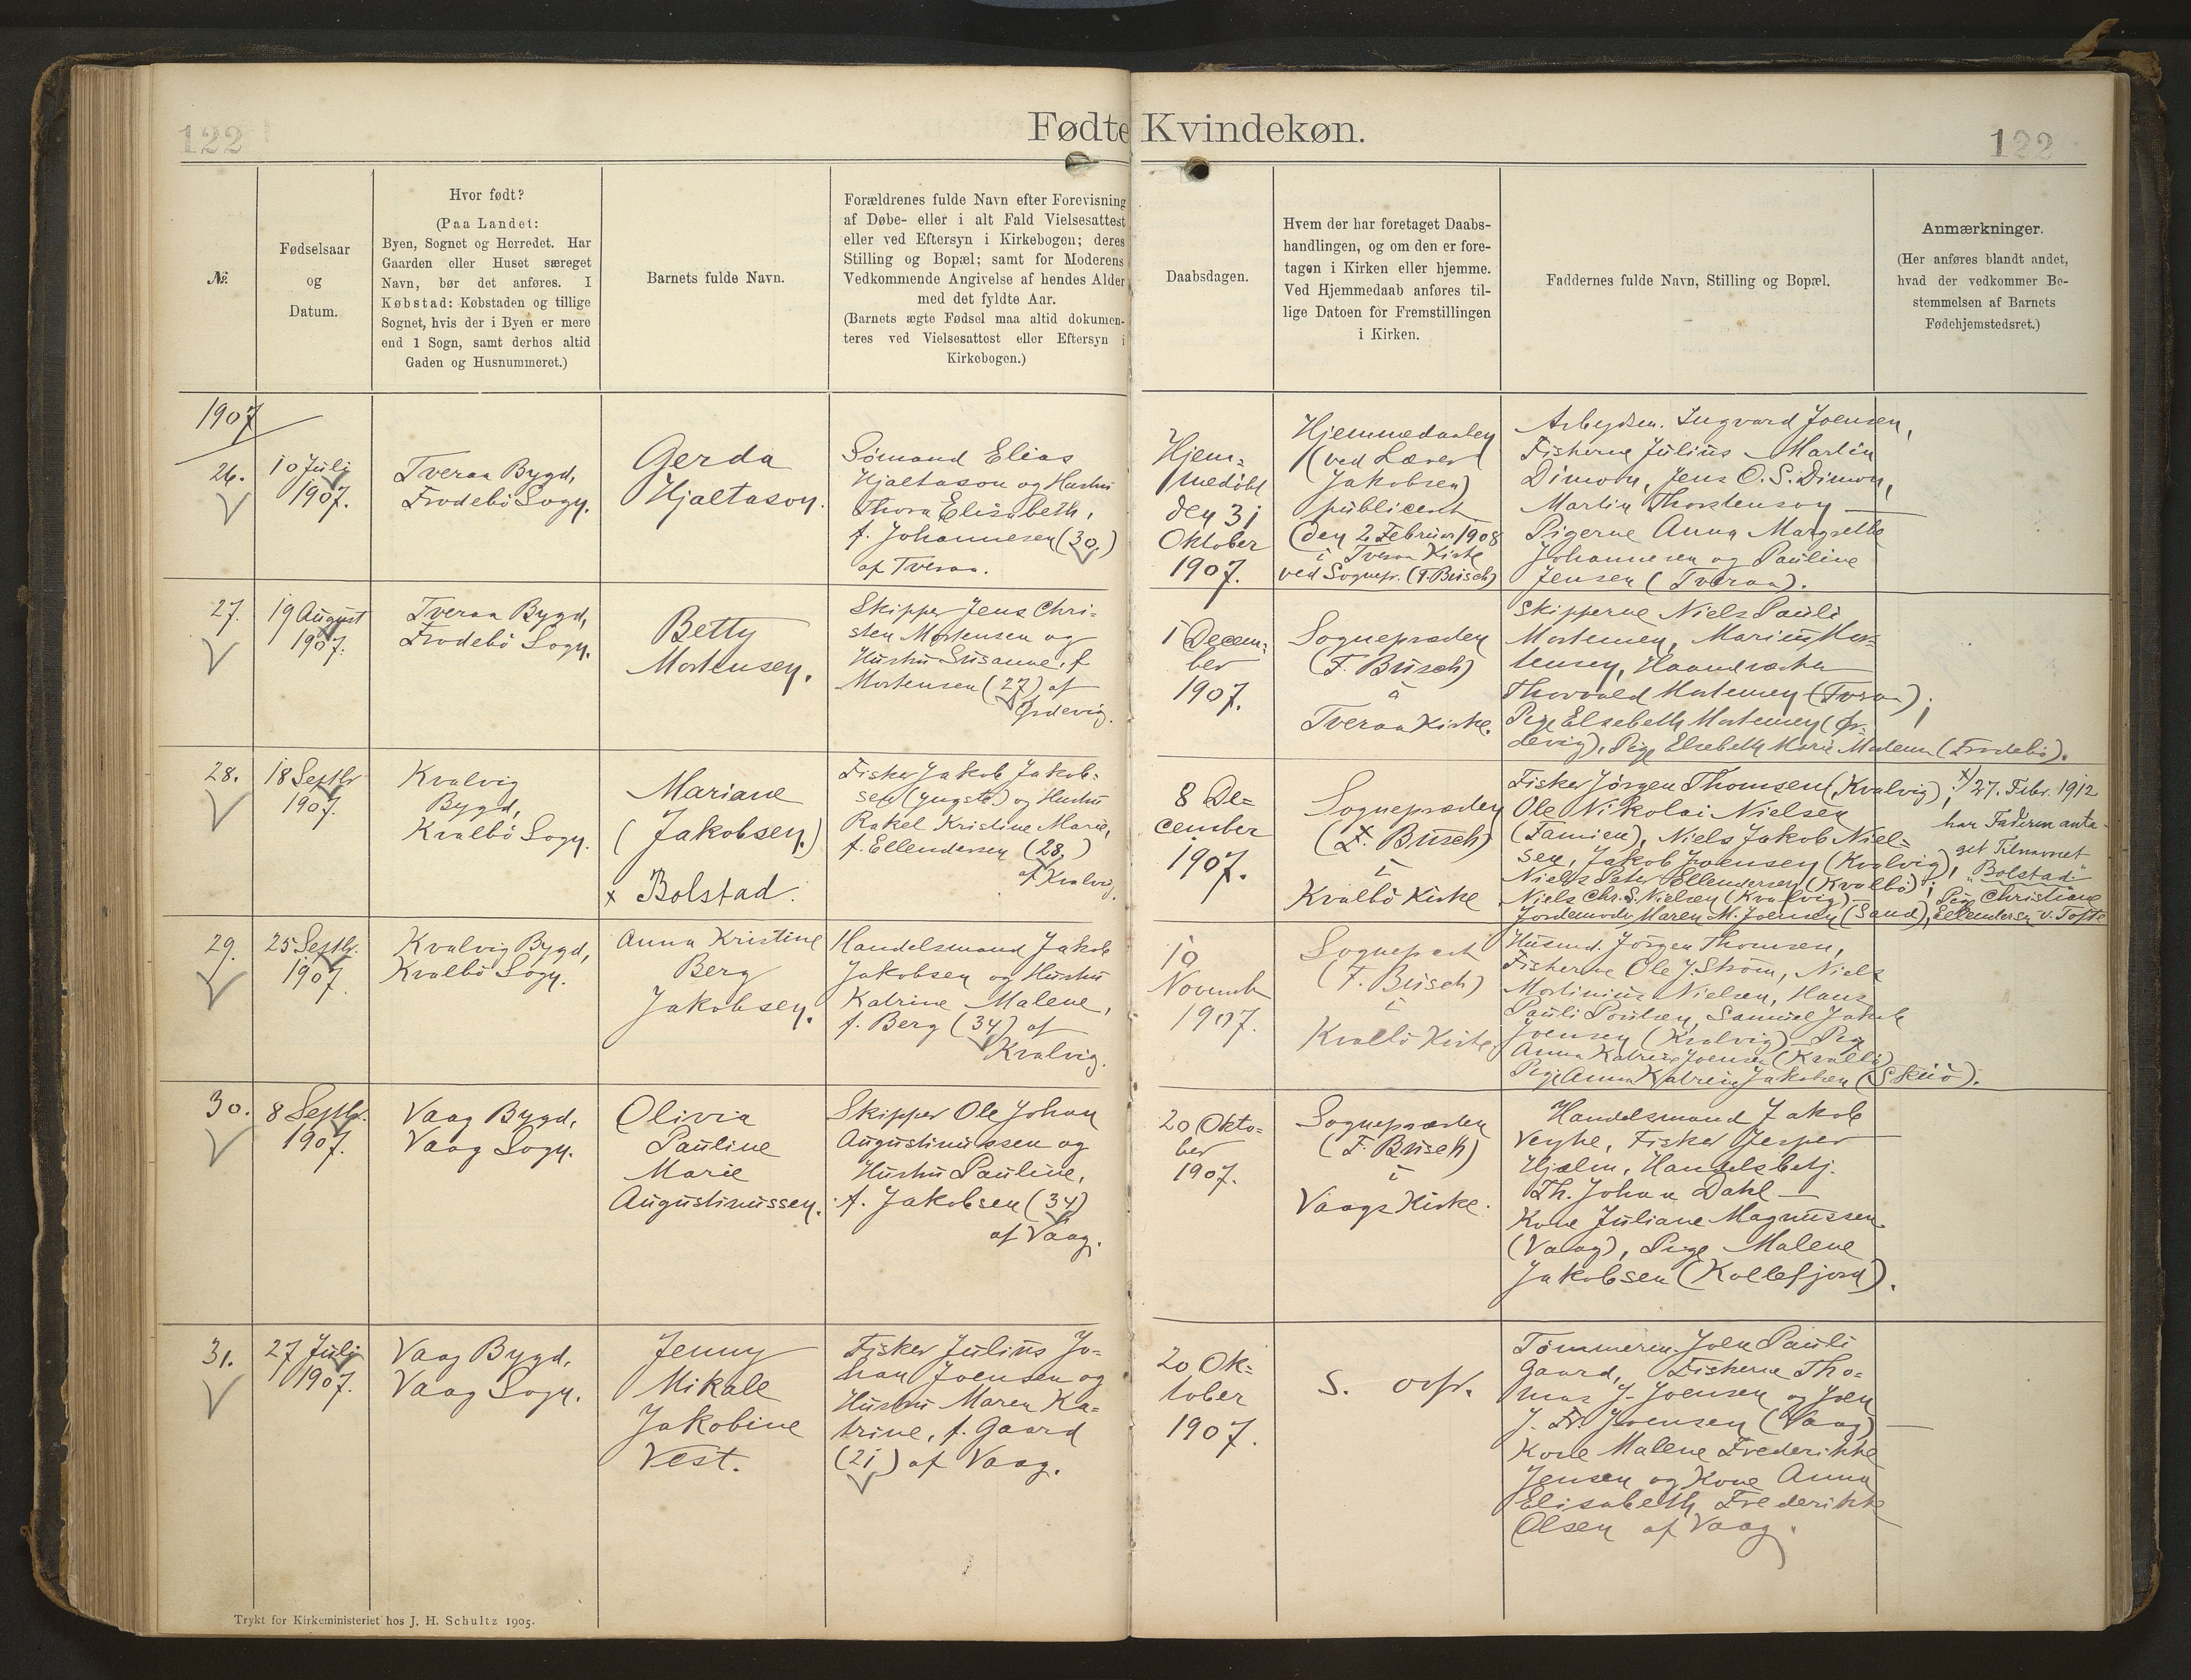 122
Fødte Kvindekøn.
122
№.
Fødselsaar
og
Datum.
Hvor født?
(Paa Landet:
Byen, Sognet og Herredet. Har
Gaarden eller Huset særeget
Navn, bør det anføres. I
Købstad: Købstaden og tillige
Sognet, hvis der i Byen er mere
end 1 Sogn, samt derhos altid
Gaden og Husnummeret.)
Barnets fulde Navn.
Forældrenes fulde Navn efter Forevisning
af Døbe- eller i alt Fald Vielsesattest
eller ved Eftersyn i Kirkebogen; deres
Stilling og Bopæl; samt for Moderens
Vedkommende Angivelse af hendes Alder
med det fyldte Aar.
(Barnets ægte Fødsel maa altid dokumen-
teres ved Vielsesattest eller Eftersyn i
Kirkebogen.)
Daabsdagen.
Hvem der har foretaget Daabs-
handlingen, og om den er fore-
tagen i Kirken eller hjemme.
Ved Hjemmedaab anføres til-
lige Datoen for Fremstillingen
i Kirken.
Faddernes fulde Navn, Stilling og Bopæl.
Anmærkninger.
(Her anføres blandt andet,
hvad der vedkommer Be-
stemmelsen af Barnets
Fødehjemstedsret.)
1907
26.
10 Juli
1907.
Tveraa Bygd,
Frodebö Sogn.
Gerda
Hjaltason.
Sömand Elias
Hjaltason og Hustru
Thora Elisabeth,
f. Johannesen (30.)
af Tveraa.
Hjem=
medöbt
den 31
Oktober
1907.
Hjemmedaaben
(ved Lærer
Jakobsen)
publiceret
(den 2 Februar 1908
i Tveraa Kirke
ved Sognepr. (F. Busch)
Arbejdsm. Ingvard Joensen,
Fiskerne Julius Martin
Dimon, Jens O. S. Dimon,
Martin Thorstenson
Pigerne Anna Margrethe
Johannesen og Pauline
Jensen (Tveraa).
27.
19 August
1907.
Tveraa Bygd,
Frodebö Sogn.
Betty
Mortensen.
Skipper Jens Chri-
sten Mortensen og
Hustru Susanne, f.
Mortensen (27) af
Ördevig.
1 Decem-
ber
1907.
Sognepræsten
(F. Busch)
i
Tveraa Kirke.
Skipperne Niels Pauli
Mortensen, Marius Mor-
tensen, Haandværker
Thorvald Mortensen (Tveraa);
Pige Elsebeth Mortensen (Ör-
devig), Pige Elsebeth Marie Mortensen (Frodebö).
28.
18 Septbr
1907.
Kvalvig
Bygd,
Kvalbö Sogn.
Mariane
(Jakobsen.)
x Bolstad.
Fisker Jakob Jakob-
sen (yngste) og Hustru
Rakel Kristine Marie,
f. Ellendersen (28.)
af Kvalvig.
8 De=
cember
1907.
Sognepræsten
(F. Busch)
i
Kvalbö Kirke
Fisker Jørgen Thomsen (Kvalvig),
Ole Nikolai Nielsen
(Famien), Niels Jakob Niel=
sen, Jakob Joensen (Kvalvig),
Niels Peter Ellendersen (Kvalbö);
Niels Chr. S. Nielsen (Kvalvig)
Jordemoder Maren M. Joensen (Sand),
Pige Christiane
Ellendersen v. Tofte
x) 27. Febr. 1912
har Faderen anta-
get Tilnavnet
"Bolstad."
29.
25 Septbr.
1907
Kvalvig Bygd,
Kvalbö Sogn.
Anna Kristine
Berg
Jakobsen.
Handelsmand Jakob
Jakobsen og Hustru
Katrine Malene,
f. Berg (34) af
Kvalvig.
10
Novemb
1907.
Sognepræst
(F. Busch)
i
Kvalbö Kirke.
Husmd. Jörgen Thomsen,
Fiskerne Ole J. Ström, Niels
Mortinius Nielsen, Hans
Pauli Poulsen, Samuel Jakob
Joensen (Kvalvig) Pige
Anna Katrine Joensen (Kvalbö)
Pige Anna Katrine Jakobsen (Skuö).
30.
8 Septbr.
1907.
Vaag Bygd,
Vaag Sogn.
Olivia
Pauline
Marie
Augustinussen.
Skipper Ole Johan
Augustinussen og
Hustru Pauline,
f. Jakobsen (34)
af Vaag.
20 Okto-
ber
1907.
Sognepræsten
(F. Busch)
i
Vaags Kirke.
Handelsmand Jakob
Veyhe, Fisker Jesper
Hjelm, Handelsbetj.
Th. Johan Dahl
Kone Juliane Magnussen
(Vaag), Pige Malene
Jakobsen (Kollefjord).
31.
27 Juli
1907.
Vaag Bygd,
Vaag Sogn.
Jenny
Mikale
Jakobine
Vest.
Fisker Julius Jo-
han Joensen og
Hustru Maren Ka-
trine, f. Gaard
(21) af Vaag.
20 Ok-
tober
1907.
S. ovfr.
Tömmerm. Joen Pauli
Gaard, Fiskerne Tho-
mas J. Joensen og Joen
J. Fr. Joensen (Vaag)
Kone Malene Frederikke
Jensen og Kone Anna
Elisabeth Frederikke
Olsen af Vaag.
Trykt for Kirkeministeriet hos J. H. Schultz 1905.